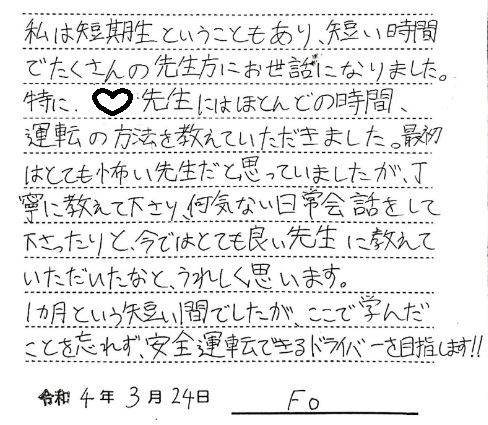 私は短期生ということもあり、短い時間
でたくさんの先生方にお世話になりました。
特に、♡先生にはほとんどの時間、
運転の方法を教えていただきました。最初
はとても怖い先生だと思っていましたが、丁
寧に教えて下さり、何気ない日常会話をして
下さったりと、今ではとても良い先生に教えて
いただいたなと、うれしく思います。
1カ月という短い間でしたが、ここで学んだ
ことを忘れず、安全運転できるドライバーを目指します!!
令和 4 年 3 月 24 日 Fo